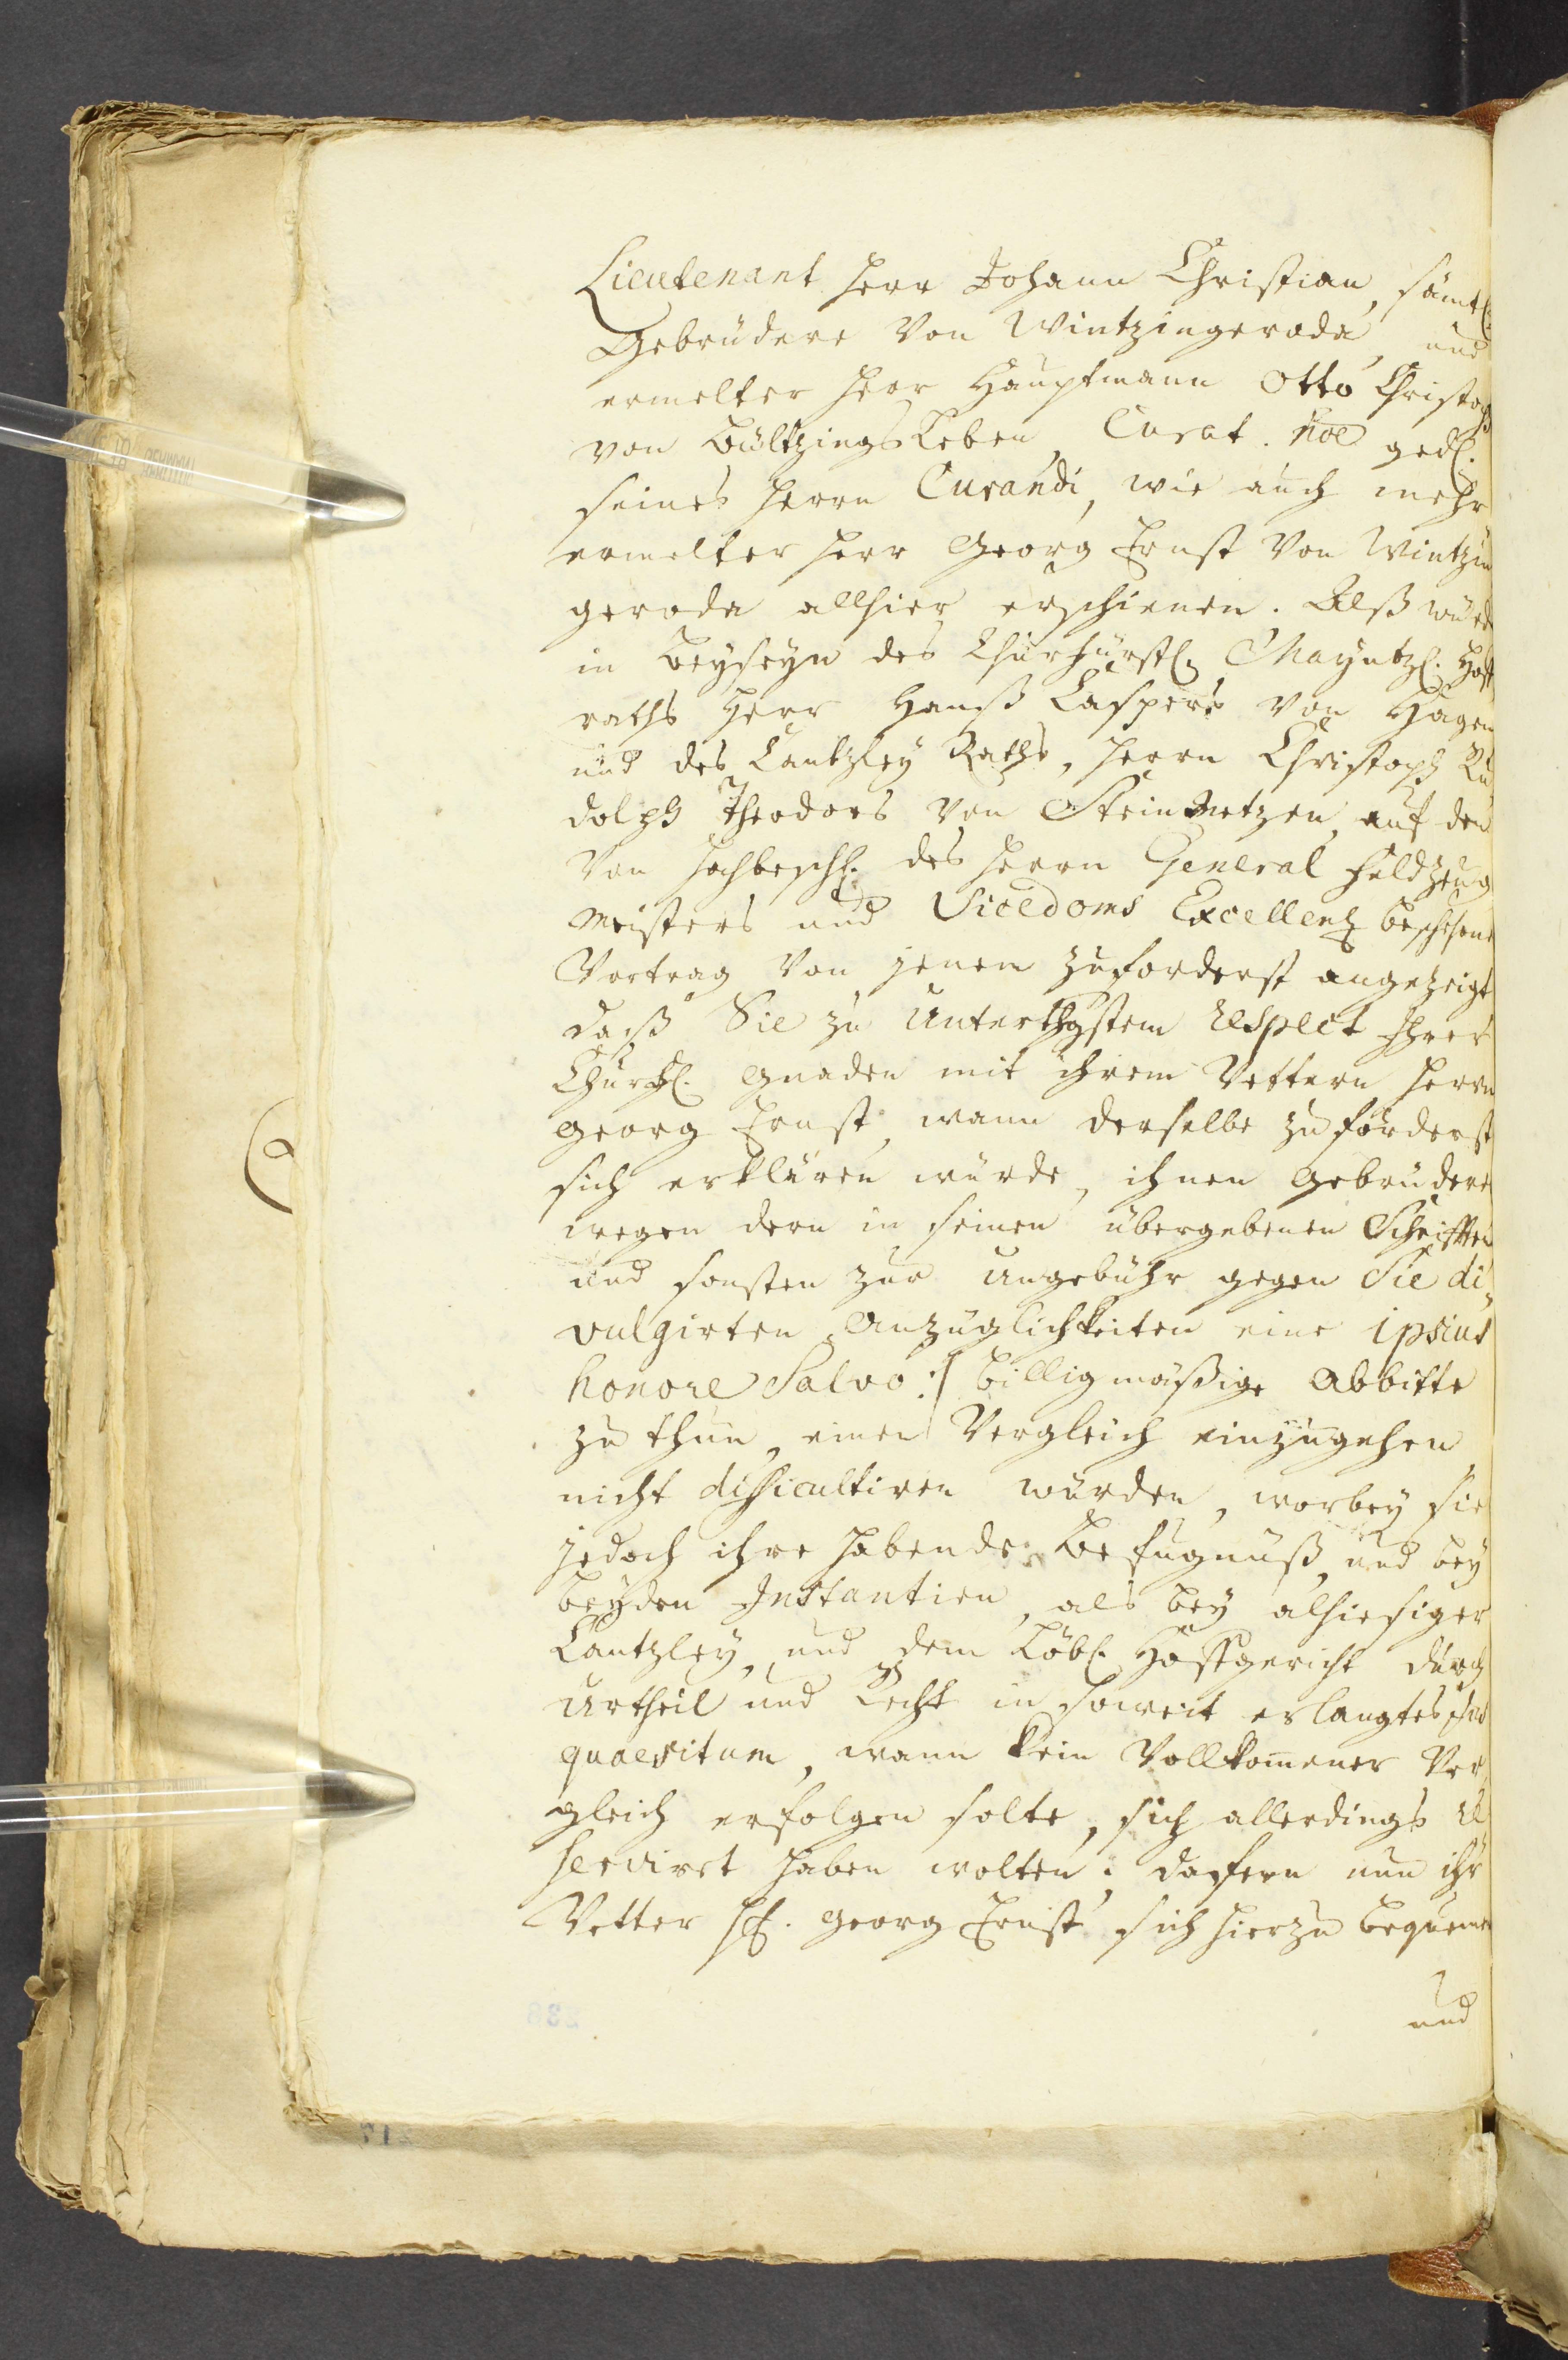 Lieutenant Herr Johann Christian, sämtl.
Gebrüdere von Wintzingeroda, und
ermelter Herr Hauptmann Otto Christoph
von Bültzingsleben, Curat. noe gedl.
seines Herrn Curandi, wie auch mehr
ermelter Herr Georg Ernst von Wintzin
geroda allhier erschienen. Alß wurde
in Beyseyn des Churfürstl. Mayntzl. Hoff
raths Herr Hanß Caspers von Hagen
und des Cantzley Raths, Herrn Christoph Ru
dolph Theodors von Steinmetzen, auf den
von hochbesagt. des Herrn General Feldzeug
meisters und Vicedoms Excellenz beschehene
Vortrag von jenem zuforderst angezeigt
daß Sie zu unterthgstem respect Ihrer
Churfl. Gnaden mit ihrem Vettern Herrn
Georg Ernst, wann derselbe zu förderst
sich erklären würde, ihnen Gebrüdere
wegen dern in seinen übergebenen Schrifften
und sonsten zur ungebühr gegen Sie di„
vulgirten Anzüglichkeiten eine ipsius
honore Salvo :| billigmäßige Abbitte
zu thun, einen Vergleich einzugehen
nicht difficultiren würden, worbey sie
jedoch ihre habende Befugnuß, und bey
beyden Instantien, als bey alhiesiger
Cantzley, und dem Löbl. Hoffgericht durch
Urtheil und Recht in soweit erlangtes jus
quaesitum, wann kein Vollkom̅ener Ver
gleich erfolgen solte, sich allerdings re
servirt haben wolten; dafern nun ihr
Vetter H. Georg Ernst sich hierzu bequemen
und